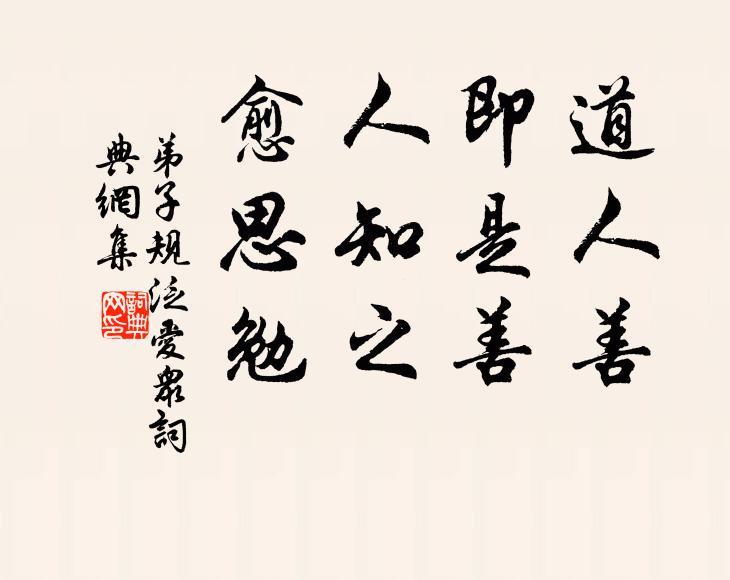 道人善
即是善
人知之
愈思勉
弟子規泛愛眾詞
典網集
詞典
网印